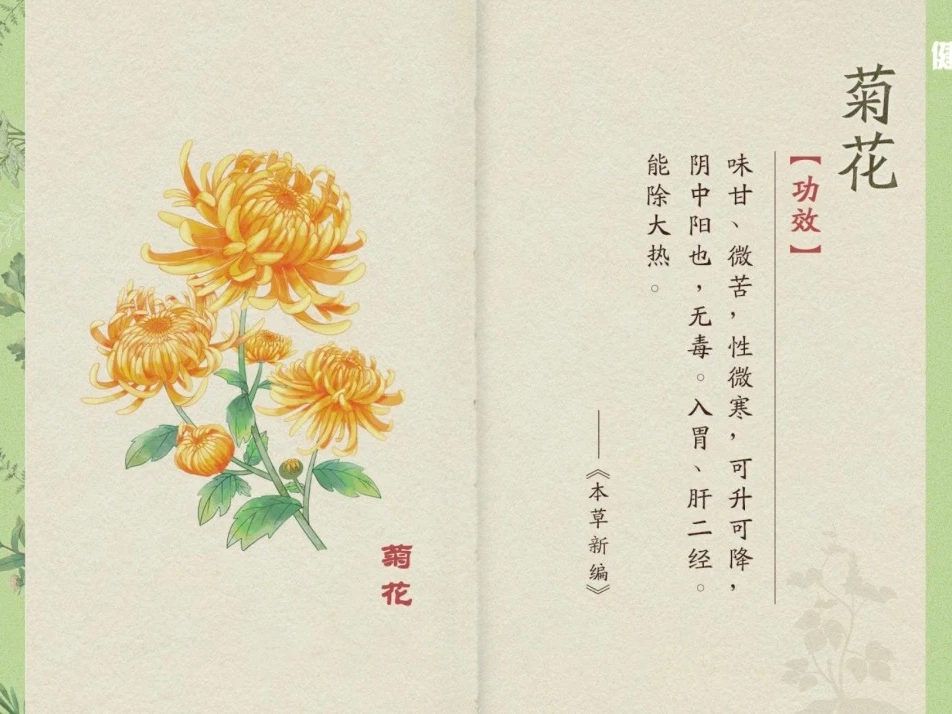 菊花
【功效】
味甘、微苦,性微寒,可升可降,
阴中阳也,无毒。入胃、肝二经。
能除大热。
——《本草新编》
菊花
健